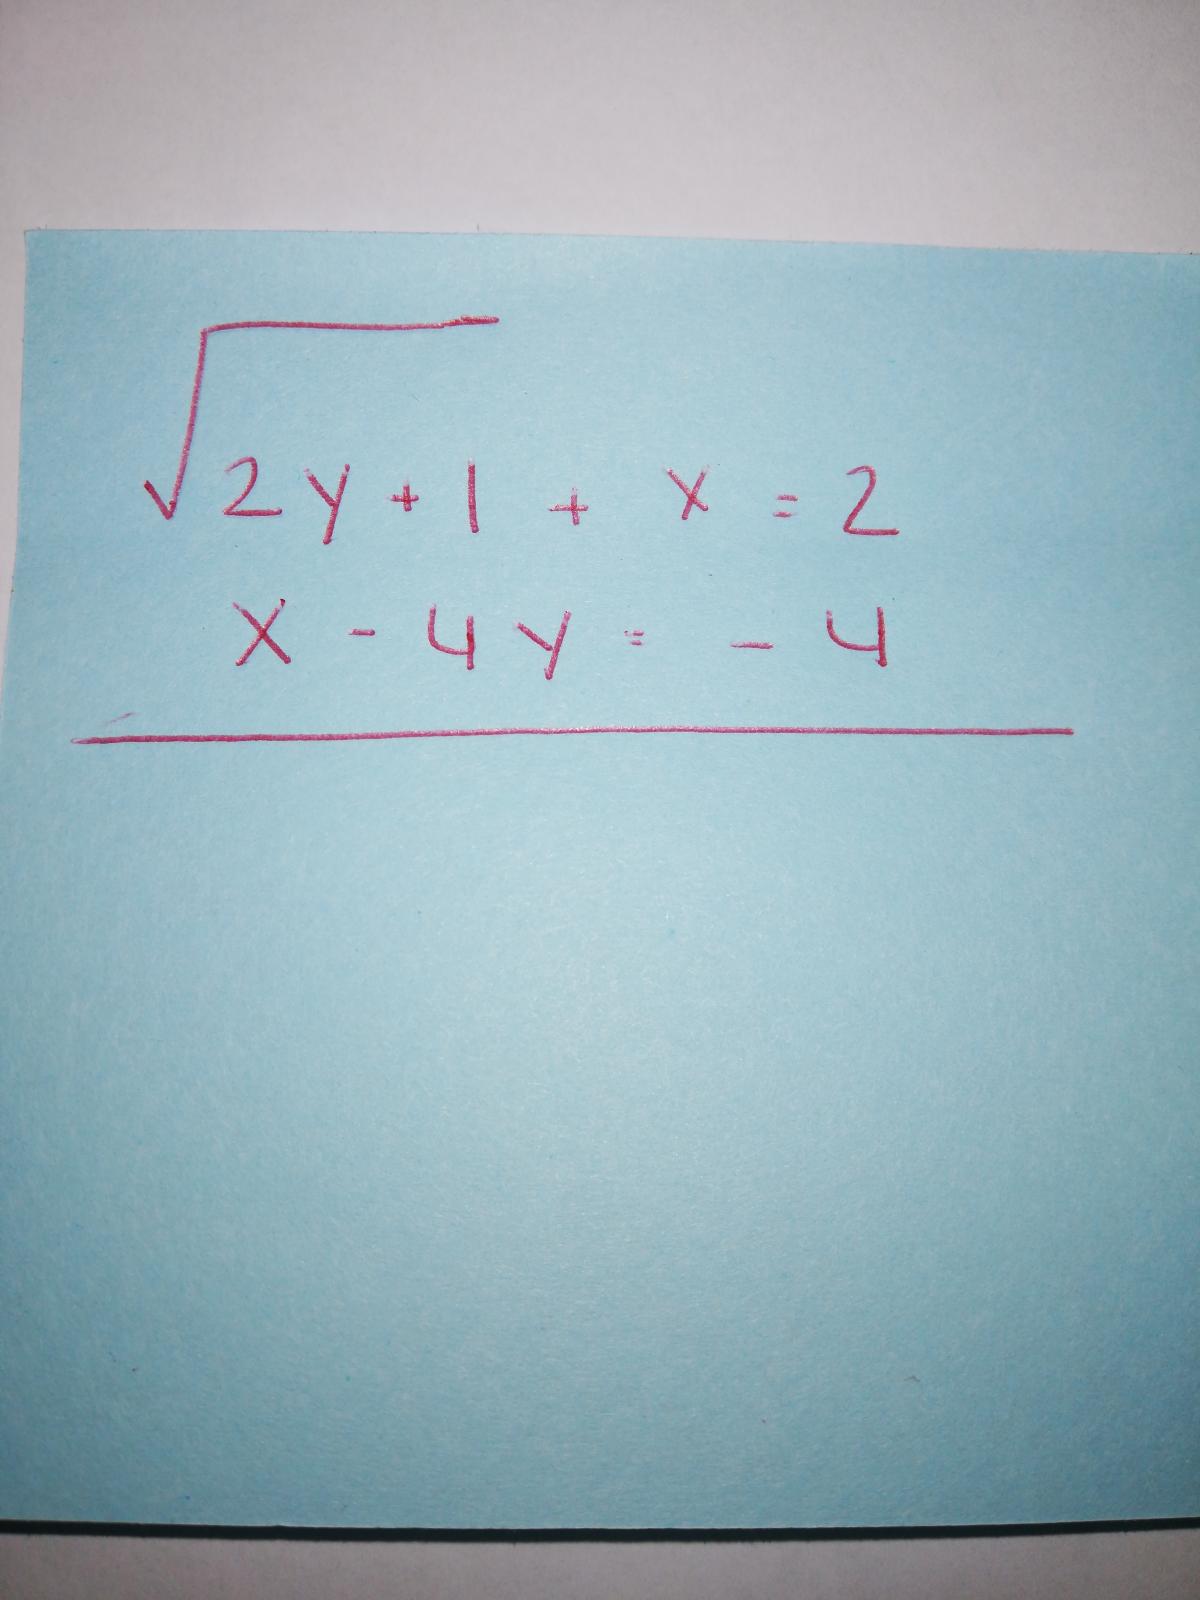 √2y+1 + x = 2
x - 4y = - 4